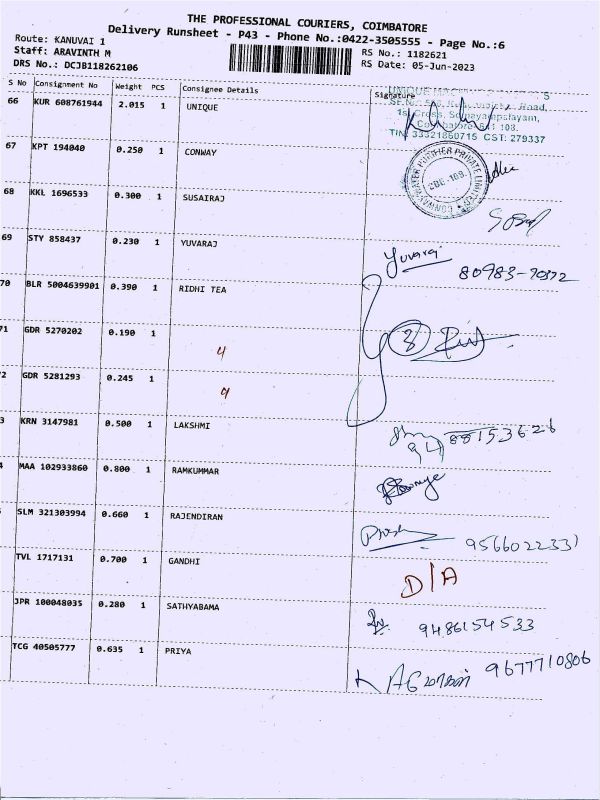 THE PROFESSIONAL COURIERS, COIMBATORE
Delivery Runsheet - P43 - Phone No.:0422-3505555 - Page No.:6
Route: KANUVAI 1
Staff: ARAVINTH M
DRS No.: DCJB118262106
RS No.: 1182621
RS Date: 05-Jun-2023
S No Consignment No Weight PCS Consignee Details Signature
66 KUR 608761944 2.015 1 UNIQUE
1st Cross,
TIN 33321860715 CST: 279337
67 KPT 194040 0.250 1 CONWAY
CONWAY WATER PURIFIER PRIVATE LIMITED
CBE-108
68 KKL 1696533 0.300 1 SUSAIRAJ
69 STY 858437 0.230 1 YUVARAJ Yuvaraj
80983-70872
70 BLR 5004639901 0.390 1 RIDHI TEA
71 GDR 5270202 0.190 1 4
2 GDR 5281293 0.245 1 4
3 KRN 3147981 0.500 1 LAKSHMI
4 MAA 102933860 0.800 1 RAMKUMMAR
SLM 321303994 0.660 1 RAJENDIRAN
TVL 1717131 0.700 1 GANDHI D/A
JPR 100048035 0.280 1 SATHYABAMA 9486154533
TCG 40505777 0.635 1 PRIYA 9677710806